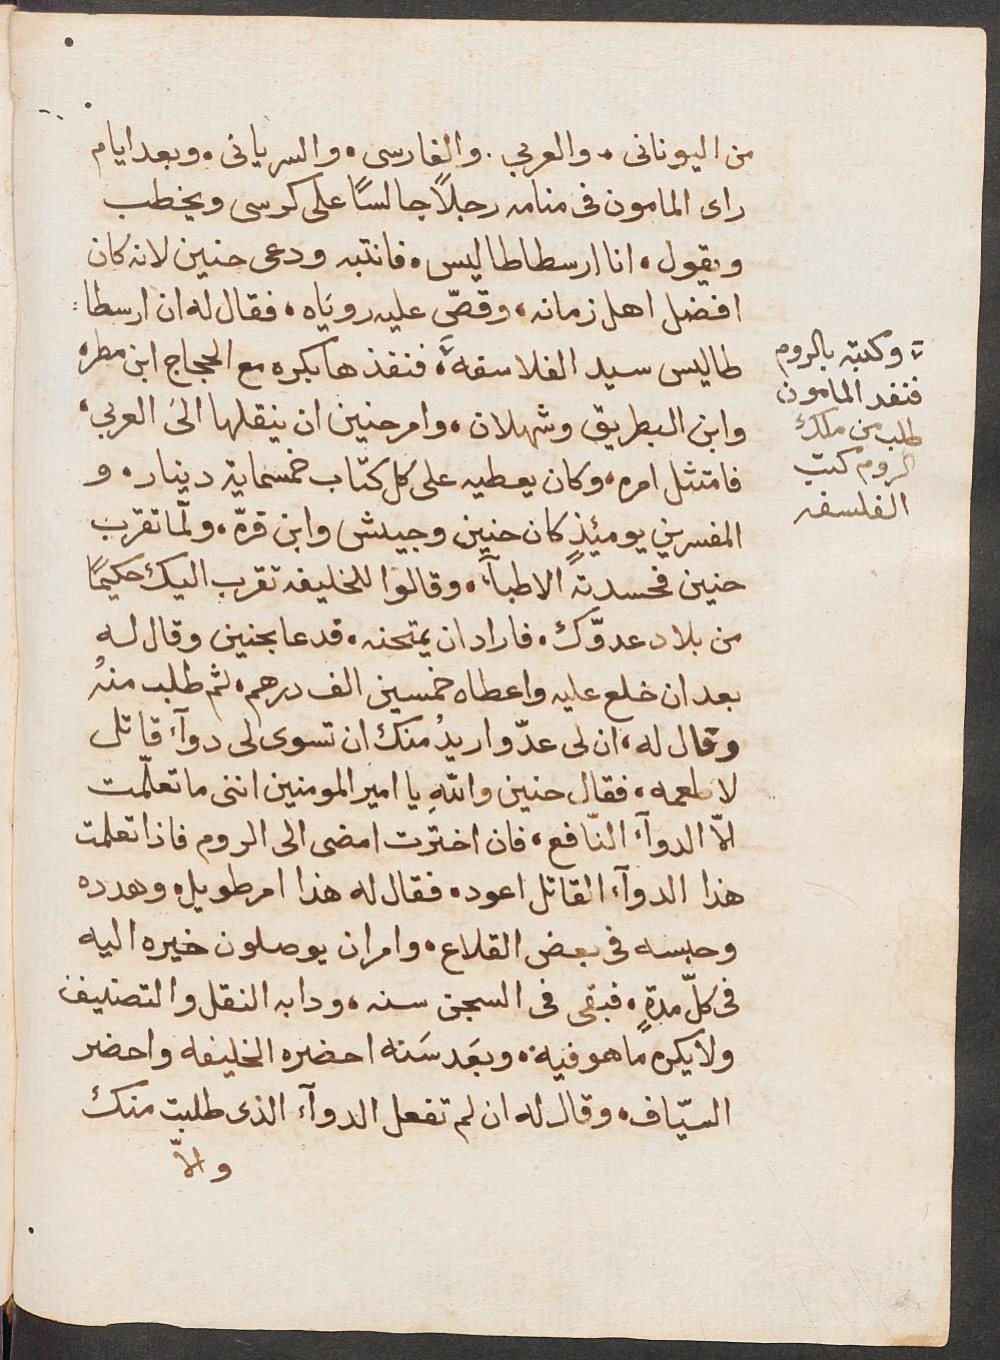 من اليونانى. والعربي. والفارسى. والسريانى. وبعد ايام
راى المامون فى منامه رجلاً جالسًا على كرسى ويخطب
ويقول، انا ارسطاطاليس، فانتبه ودعى حنين لانه كان
افضل اهل زمانه، وقصّى عليه روياه، فقال له ان ارسطا
طاليس سيد الفلاسفة، فنفذ هابكره مع الحجاج ابن مطره
وابن البطريق وشهلان، وامر حنين ان ينقلها الىَ العربي،
فامتثل امره، وكان يعطيه على كل كتاب خمسماية دينار. و
المفسرين يومئذٍ كان حنين وحبيش وابن قرة، ولمّا تقرب
حنين فحسدته الاطبآء، وقالوا للخليفه تقرب اليك حكيمًا
من بلاد عدوّك، فاراد ان يمتحنه، فدعا بحنين وقال له
بعد ان خلع عليه واعطاه خمسين الف درهم، ثم طلب منهُ
وقال له، ان لى عدّو اريدُ منك ان تسوى لى دوآء قاتل
لاطعمه، فقال حنين واللهِ يا امير المومنين اننى ما تعلّمت
الاّ الدوآء النّافع، فان اخترت امضى الى الروم فاذا تعلمت
هذا الدوآء القاتل اعود، فقال له هذا امر طويل، وهدده
وحبسه فى بعض القلاع، وامر ان يوصلون خيره اليه
فى كلّ مدةٍ، فبقى فى السجن سنه، ودابه النقل والتصنيف
ولا يكره ما هو فيه، وبعَد سَنه احضره الخليفه واحضر
السيّاف، وقال له ان لم تفعل الدوآء الذى طلبت منك
والاّ
وكتبه بالروم
فنفد المامون
طلب من ملك
الروم كتب
الفلسفه